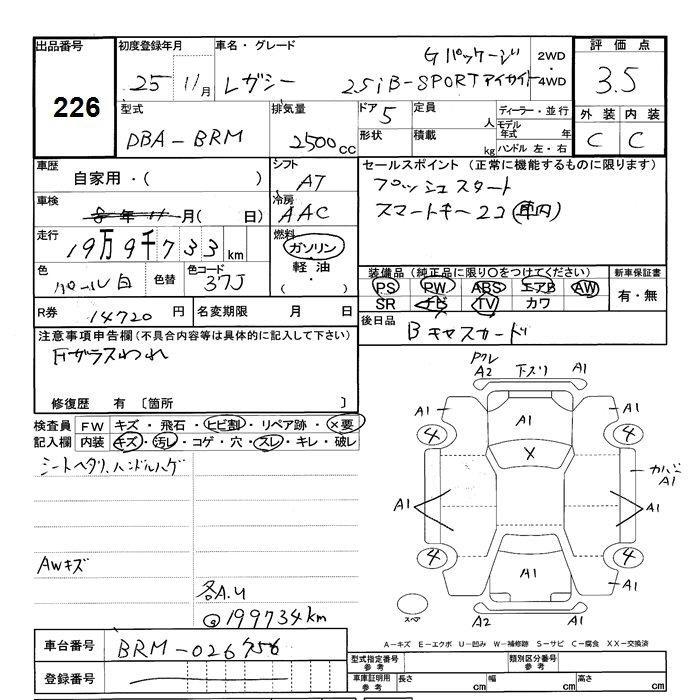 出品番号 226
初度登録年月 25 11月
車名・グレード Gパッケージ 2WD
レガシー 2.5iB-SPORTアイサイト 4WD
評価点 3.5
外装 内装
C C
型式 DBA-BRM
排気量 2500cc
ドア 5
形状
定員 人
積載 kg
ディーラー・並行
モデル年式 年
ハンドル 左・右
車歴 自家用・( )
シフト AT
車検 8年11月( 日)
冷房 AAC
走行 19万9千733km
燃料 ガソリン
軽油
( ・ )
色 パール白 色替
色コード 37J
R券 14720円 名変期限 月 日
セールスポイント (正常に機能するものに限ります)
プッシュスタート
スマートキー2コ(車内)
装備品(純正品に限り○をつけてください) 新車保証書
PS PW ABS エアB AW 有・無
SR ナビ TV カワ
後日品 Bキャスカード
注意事項申告欄(不具合内容等は具体的に記入して下さい)
Fガラスわれ
修復歴 有 〔箇所 〕
検査員 FW キズ・飛石・ヒビ割・リペア跡・×要
記入欄 内装 キズ・汚レ・コゲ・穴・スレ・キレ・破レ
シートヘタリ、ハンドルハゲ
AWキズ
各A.U
199734km
アクレ
A2 下スリ A1
A1 A1 A1
4 X 4
カハン
A1
A1 A1
4 4
A1 A1 A1
スペア A2 A1
A-キズ E-エクボ U-凹み W-補修跡 S-サビ C-腐食 XX-交換済
車台番号 BRM-026756
登録番号
型式指定番号 参考 類別区分番号 参考
車庫証明用 参考 長さ cm 幅 cm 高さ cm